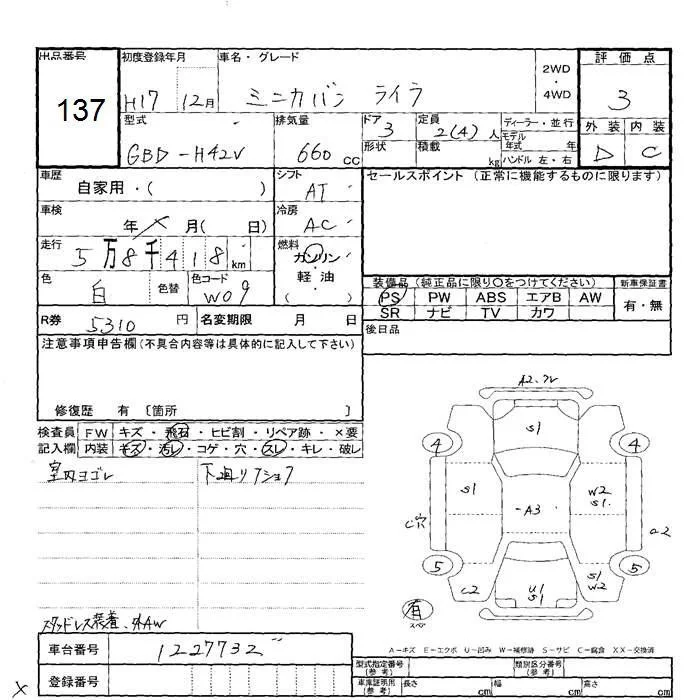 出品番号 初度登録年月 車名・グレード 2WD・4WD 評価点
137 H17 12月 ミニカバン ライラ 3
型式 排気量 ドア 定員 ディーラー・並行 外装 内装
GBD-H42V 660 cc 3 2(4)人 モデル年式 年 D C
形状 積載 kg ハンドル 左・右
車歴 自家用・( ) シフト AT セールスポイント (正常に機能するものに限ります)
車検 年 月( 日) 冷房 AC
走行 5万8千418km 燃料 ガソリン・軽油・( )
色 白 色替 色コード W09
装備品 (純正品に限り○をつけてください) 新車保証書
PS PW ABS エアB AW 有・無
SR ナビ TV カワ
R券 5310円 名変期限 月 日 後日品
注意事項申告欄 (不具合内容等は具体的に記入して下さい)
修復歴 有 〔箇所 〕
検査員 FW キズ・飛石・ヒビ割・リペア跡・×要
記入欄 内装 キズ・汚レ・コゲ・穴・スレ・キレ・破レ
室内ヨゴレ 下廻りフショク
A2.
S1
4 4
S1 W2
S1.
A3
C穴 a2
5 5
C2 U1
S1 S1
W2
有
スペア
スタッドレス装着、外AW
A-キズ E-エクボ U-凹み W-補修跡 S-サビ C-腐食 XX-交換済
車台番号 1227732
登録番号
型式指定番号(参考) 類別区分番号(参考)
車庫証明用(参考) 長さ cm 幅 cm 高さ cm
×